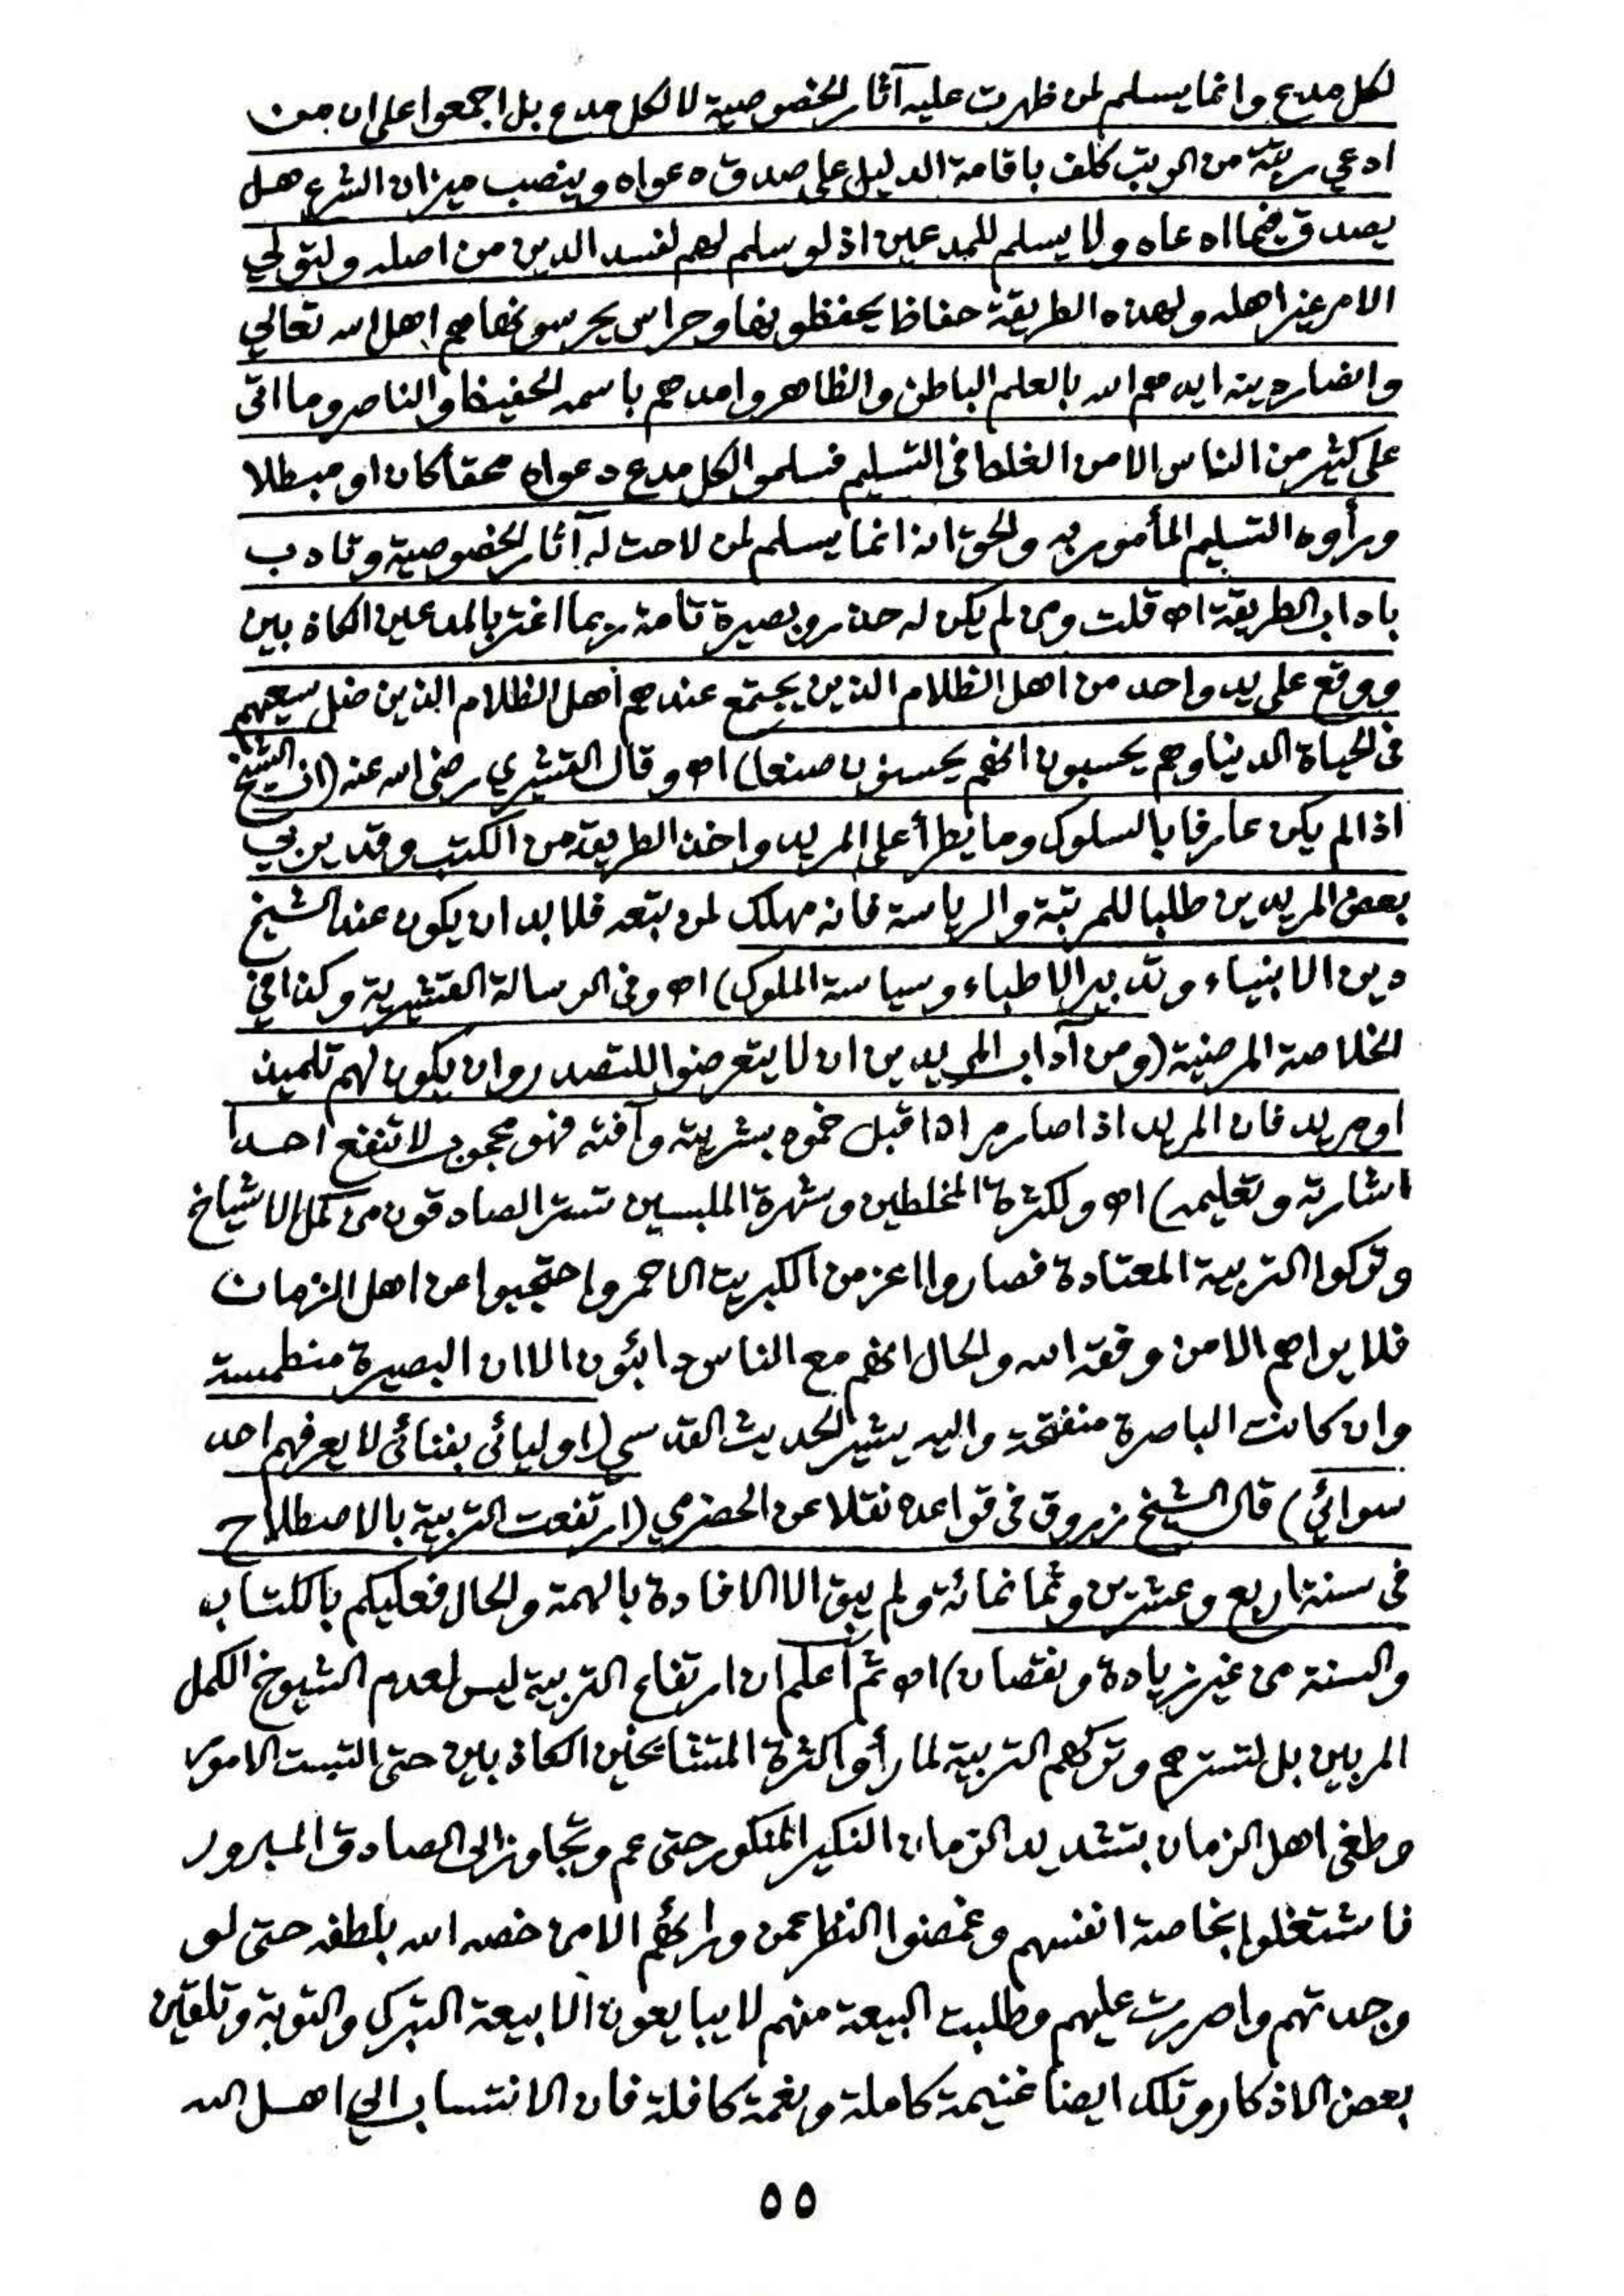 لكل مدع وانما يسلم لمن ظهرت عليه آثار الخصوصية لا لكل مدع بل اجمعوا على ان من
ادعي رتبة من الرتب كلف باقامة الدليل على صدق دعواه وينصب ميزان الشرع هل
يصدق فيما ادعاه ولا يسلم للمدعين اذ لو سلم لهم لفسد الدين من اصله ولتولي
الامر غير اهله ولهذه الطريقة حفاظ يحفظونها وحراس يحرسونها هم اهل الله تعالي
وانصار دينه ايدهم الله بالعلم الباطن والظاهر وامدهم باسمه الحفيظ والناصر وما اتى
على كثير من الناس الا من الغلط في التسليم فسلموا لكل مدع دعواه محقا كان او مبطلا
ورأوه التسليم المأمور به والحق انه انما يسلم لمن لاحت له آثار الخصوصية وتادب
باداب الطريقة اه قلت ومن لم يكن له حذر وبصيرة تامة ربما اغتر بالمدعين الكاذبين
ووقع على يد واحد من اهل الظلام الذين يجتمع عندهم أهل الظلام الذين ضل سيعهم
في الحياة الدينا وهم يحسبون انهم يحسنون صنعا) اه وقال القشيري رضى الله عنه (ان الشيخ
اذا لم يكن عارفا بالسلوك وما يطرأ على المريد واخذ الطريقة من الكتب وقد يربي
بعض المريدين طلبا للمرتبة والرياسة فانه مهلك لمن يتبعه فلا بد ان يكون عند الشيخ
دين الانبياء وتدبير الاطباء وسياسة الملوك) اه وفي الرسالة القشيرية وكذا في
الخلاصة المرضية (ومن آداب المريدين ان لا يتعرضوا للتصدر وان يكون لهم تلميذ
او مريد فان المريد اذا صار مرادا قبل خمود بشريته وآفته فهو محجوب لا تنفع احداً
اشارته وتعليمه) اه ولكثرة المخلطين وشهرة الملبسين تستر الصادقون من كمل الاشياخ
وتركوا التربية المعتادة فصاروا اعز من الكبريت الاحمر واحتجبوا عن اهل الزمان
فلا يراهم الا من وفقه الله والحال انهم مع الناس دائبون الا ان البصيرة منطمسة
وان كانت الباصرة منفتحة واليه يشير الحديث القدسي (اوليائى بفنائى لا يعرفهم احد
سوائي) قال الشيخ زروق في قواعده نقلا عن الحضرمي (ارتفعت التربية بالاصطلاح
في سنة اربع وعشرين وثمانمائة ولم يبق الا الافادة بالهمة والحال فعليكم بالكتاب
والسنة من غير زيادة ونقصان) اه ثم أعلم ان ارتفاع التربية ليس لعدم الشيوخ الكمل
المربين بل لتسترهم وتركهم التربية لما رأوا كثرة المتشايخين الكاذبين حتى التبست الامور
وطغى اهل الزمان بتشديد الزمان النكير المنكور حتى عم وتجاوز الى الصادق المبرور
فاشتغلوا بخاصة انفسهم وغمضوا النظر عمن ورائهم الا من خصه الله بلطفه حتى لو
وجدتهم واصررت عليهم وطلبت البيعة منهم لا يبايعون الا بيعة التبرك والتوبة وتلقين
بعض الاذكار وتلك ايضا غنيمة كاملة ونغمة كافلة فان الانتساب الي اهل الله
٥٥